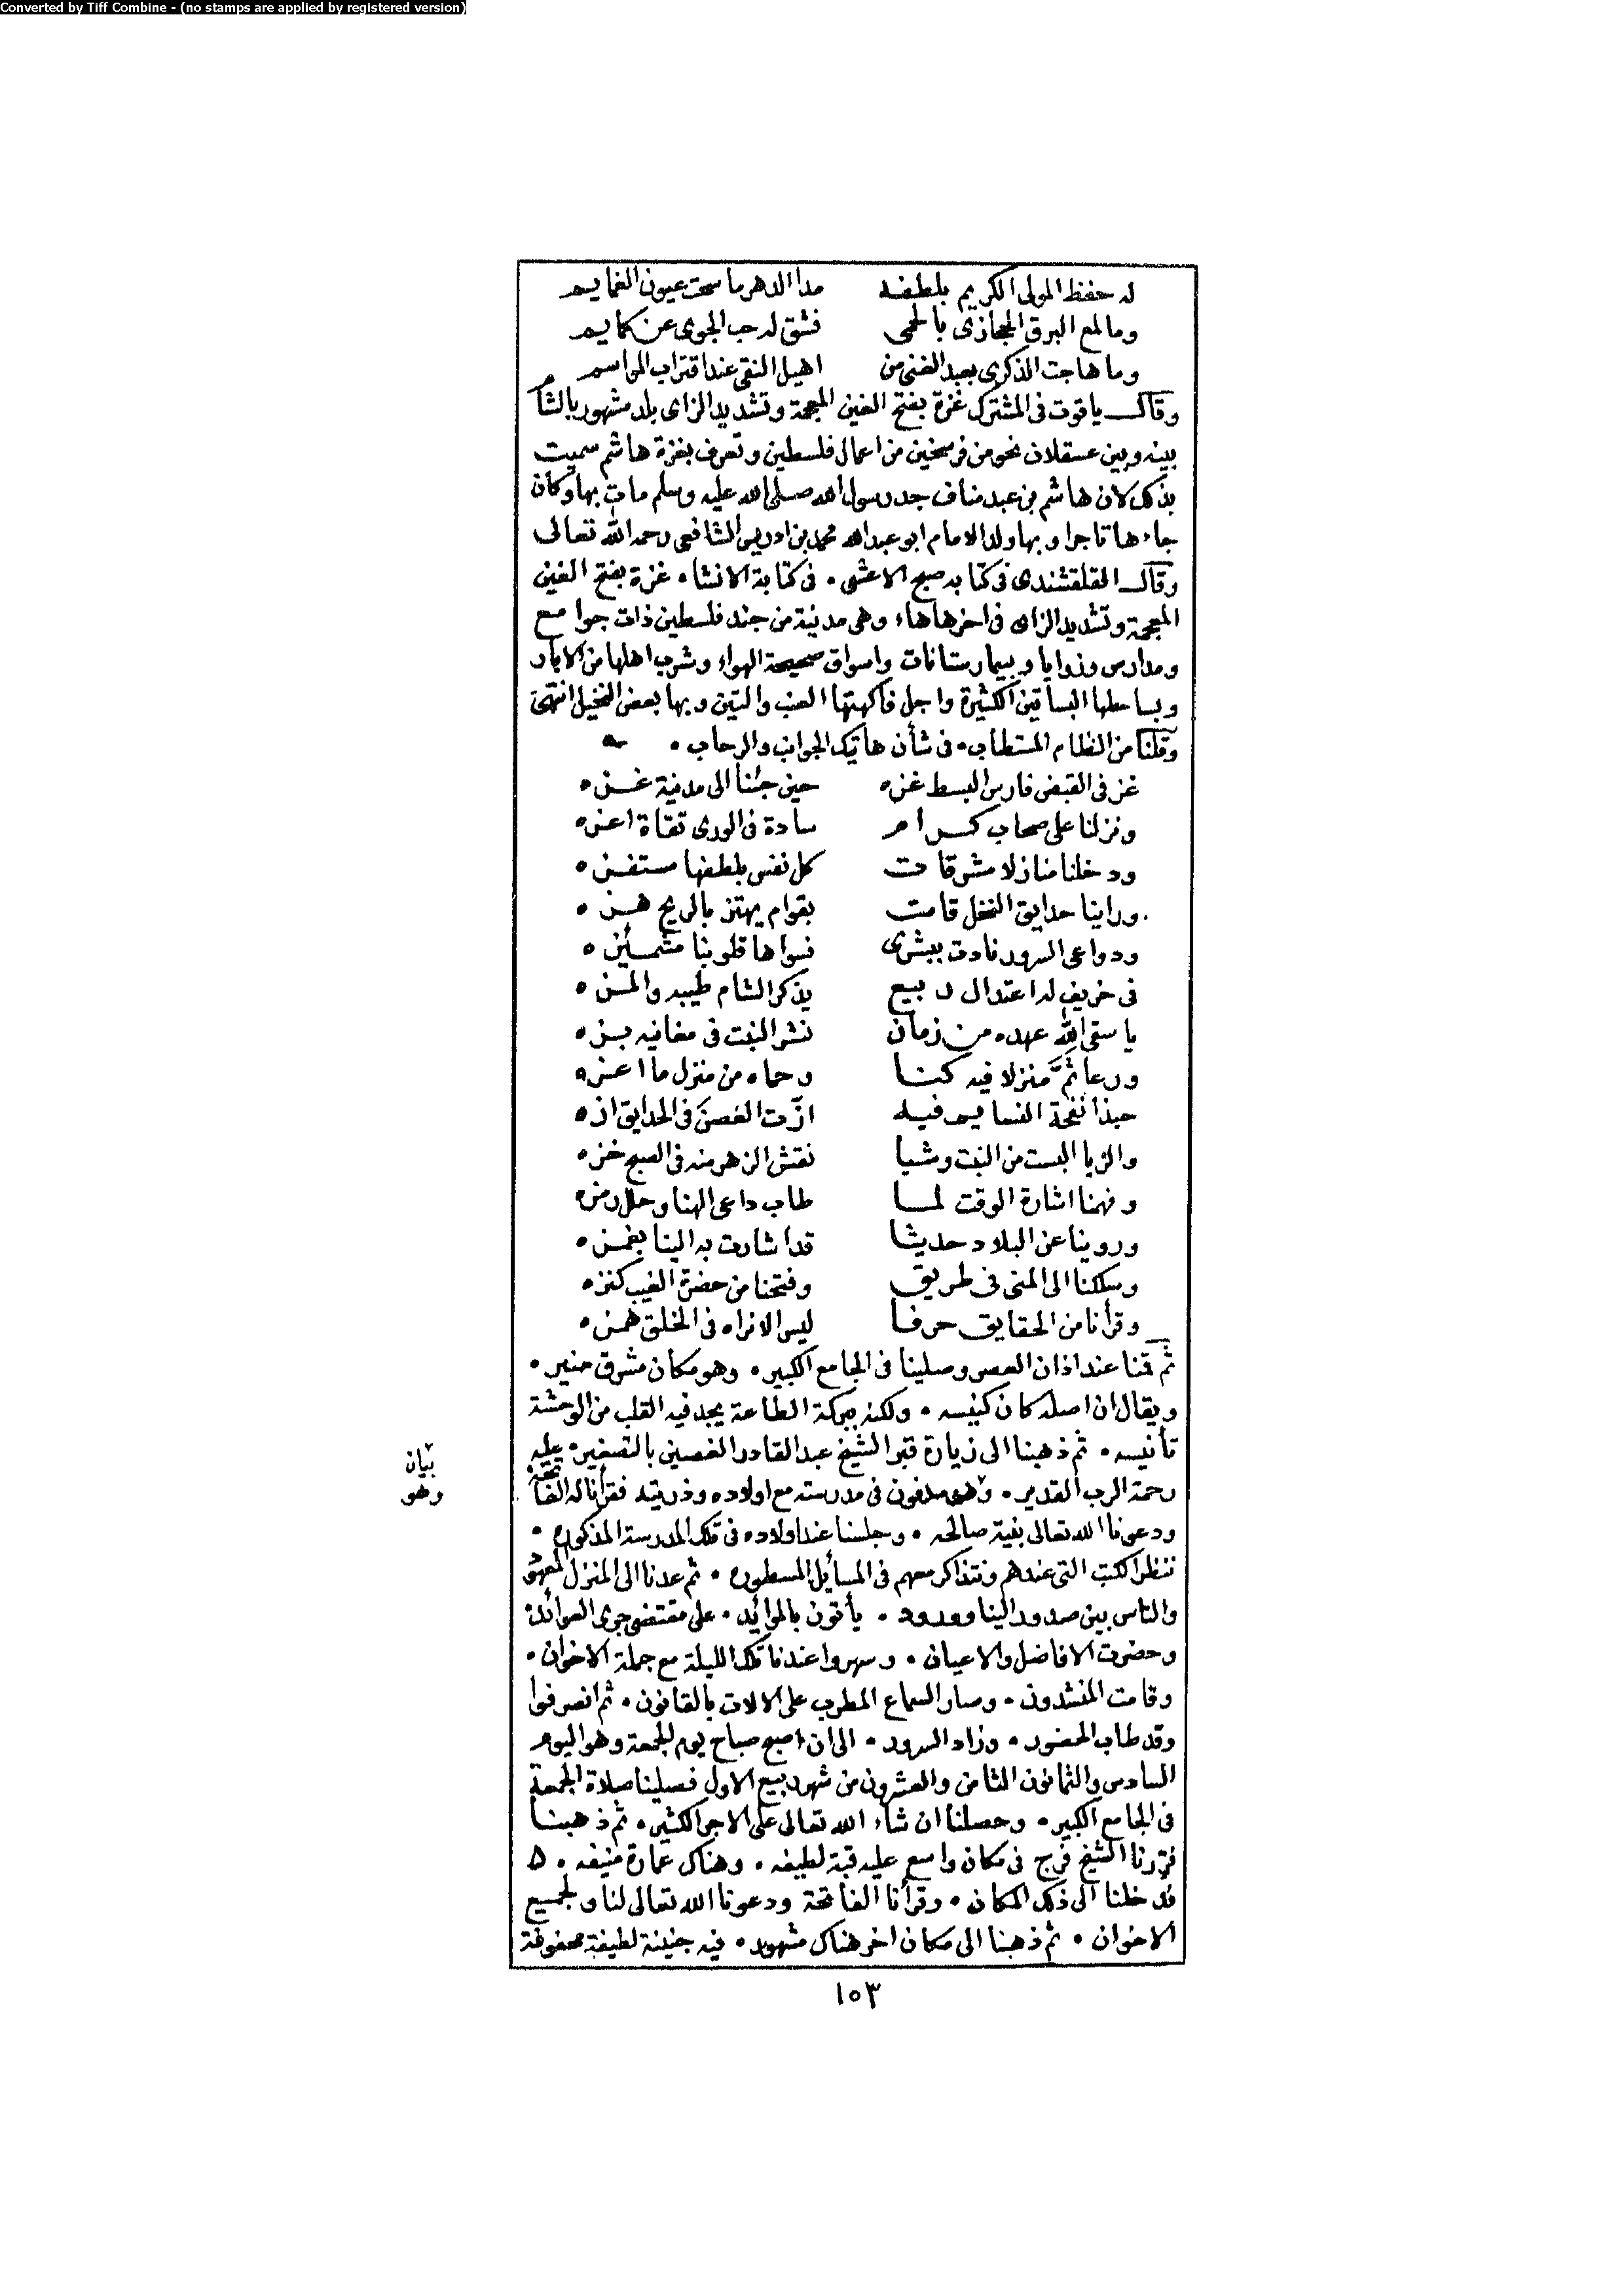 Converted by Tiff Combine - (no stamps are applied by registered version)
له حفظ المولى الكريم بلطفه مدا الدهر ما سحت عيون الغمايم
وما لمع البرق الحجازى بالحمى فشق له جب الجوى عن كمايم
وما هاجت الذكرى بعبد الغنى من اهيل النقى عند اقتراب المواسم
وقال ياقوت فى المشترك غزة بفتح الغين المعجمة وتشديد الزاى بلد مشهور بالشام
بينه وبين عسقلان نحو من فرسخين من اعمال فلسطين وتعرف بغزة هاشم سميت
بذلك لان هاشم بن عبد مناف جد رسول الله صلى الله عليه وسلم مات بها وكان
جاءها تاجرا وبها ولد الامام ابو عبد الله محمد بن ادريس الشافعى رحمه الله تعالى
وقال القلقشندى فى كتابه صبح الاعشى ۰ فى كتابة الانشا ۰ غزة بفتح الغين
المعجمة وتشديد الزاى فى اخرها هاء وهى مدينة من جند فلسطين ذات جوامع
ومدارس وزوايا وبيمارستانات واسواق صحيحة الهواء وشرب اهلها من الابار
وبساحلها البساتين الكثيرة واجل فاكهتها العنب والتين وبها بعض النخيل انتهى
وقلنا من النظام المستطاب ۰ فى شأن هاتيك الجوانب والرحاب ۰
غز فى القبض فارس البسط غزه حين جئنا الى مدينة غزه
ونزلنا على صحاب كرام سادة فى الورى تقاة اعزه
ودخلنا منازلا مشرقات كل نفس بلطفها مستفزه
وراينا حدايق النخل قامت بقوام يهتز بالريح هزه
ودواعى السرور نادت ببشرى نسواها قلوبنا مشمئزه
فى خريف له اعتدال ربيع يذكر الشام طيبه والمزه
يا سقى الله عهده من زمان نشر النبت فى مغانيه بزه
ورعا ثمّ منزلا فيه كنا وحماه من منزل ما اعزه
حبذا نفحة النسايم فيه ازّت الغصن فى الحدايق ازه
والربا البست من النبت وشيا نقش الزهر منه فى الصبح خزه
وفهمنا اشارة الوقت لما طاب داعى الهنا وحل رمزه
وروينا عن البلاد حديثا قد اشارت به الينا بغمزه
وسلكنا الى المنى فى طريق وفتحنا من حضرة الغيب كنزه
وقرأنا من الحقايق حرفا ليس الا نراه فى الخلق همزه
ثم قمنا عند اذان العصر وصلينا فى الجامع الكبير ۰ وهو مكان مشرق منير ۰
ويقال ان اصله كان كنيسه ۰ ولكنه ببركة الطاعة يجد فيه القلب من الوحشة
تأنيسه ۰ ثم ذهبنا الى زيارة قبر الشيخ عبد القادر الغصين بالتصغير ۰ عليه
رحمة الرب القدير ۰ وهو مدفون فى مدرسته مع اولاده وذريته فقرأنا له الفاتحة
بيان
وهو
ودعونا الله تعالى بنية صالحه ۰ وجلسنا عند اولاده فى تلك المدرسة المذكوره ۰
ننظر الكتب التى عندهم ونتذاكر معهم فى المسائل المسطوره ۰ ثم عدنا الى المنزل المعهود
والناس بين صدور الينا وورود ۰ يأتون بالموائد ۰ على مقتضى جرى العوائد ۰
وحضرت الافاضل والاعيان ۰ وسهروا عندنا تلك الليلة مع جملة الاخوان ۰
وقامت المنشدون ۰ وصار السماع المطرب على الالات بالقانون ۰ ثم انصرفوا
وقد طاب الحضور ۰ وزاد السرور ۰ الى ان اصبح صباح يوم الجمعة وهو اليوم
السادس والثمانون الثامن والعشرون من شهر ربيع الاول فصلينا صلاة الجمعة
فى الجامع الكبير ۰ وحصلنا ان شاء الله تعالى على الاجر الكثير ۰ ثم ذهبنا
فزرنا الشيخ فرج فى مكان واسع عليه قبة لطيفه ۰ وهناك عمارة منيفه ۰
فدخلنا الى ذلك المكان ۰ وقرأنا الفاتحة ودعونا الله تعالى لنا ولجميع
الاخوان ۰ ثم ذهبنا الى مكان اخر هناك مشهور ۰ فيه جنينة لطيفة محفوفة
١٠٣